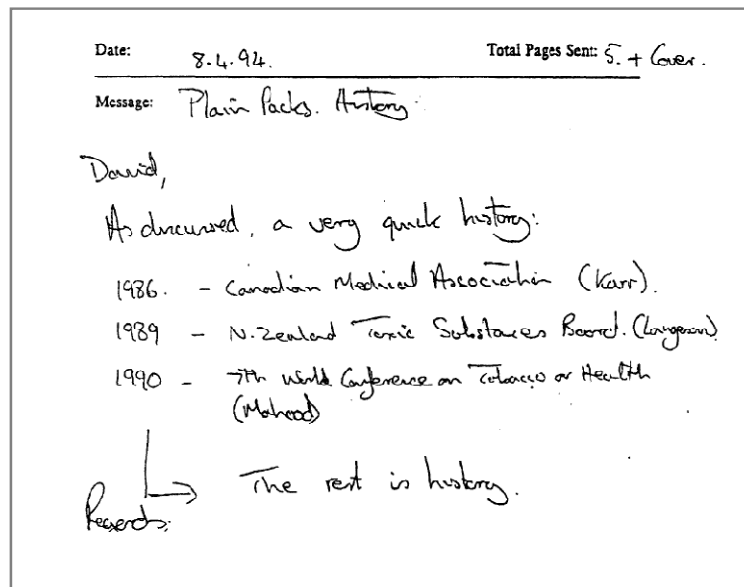 Date: 8.4.94. Total Pages Sent: 5. + Cover.
Message: Plain Packs. History.
David,
As discussed, a very quick history:
1986. - Canadian Medical Association (Karr).
1989 - N. Zealand Toxic Substances Board. (Laugesen)
1990 - 7th World Conference on Tobacco or Health
(Mahood)
The rest is history.
Regards.